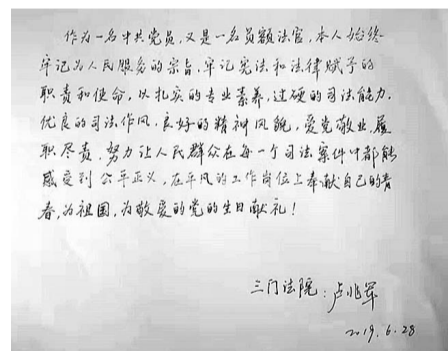 作为一名中共党员,又是一名员额法官,本人始终
牢记为人民服务的宗旨,牢记宪法和法律赋予的
职责和使命,以扎实的专业素养,过硬的司法能力,
优良的司法作风,良好的精神风貌,爱党敬业,履
职尽责,努力让人民群众在每一个司法案件中都能
感受到公平正义,在平凡的工作岗位上奉献自己的青
春,为祖国,为敬爱的党的生日献礼!
三门法院:卢兆军
2019.6.28